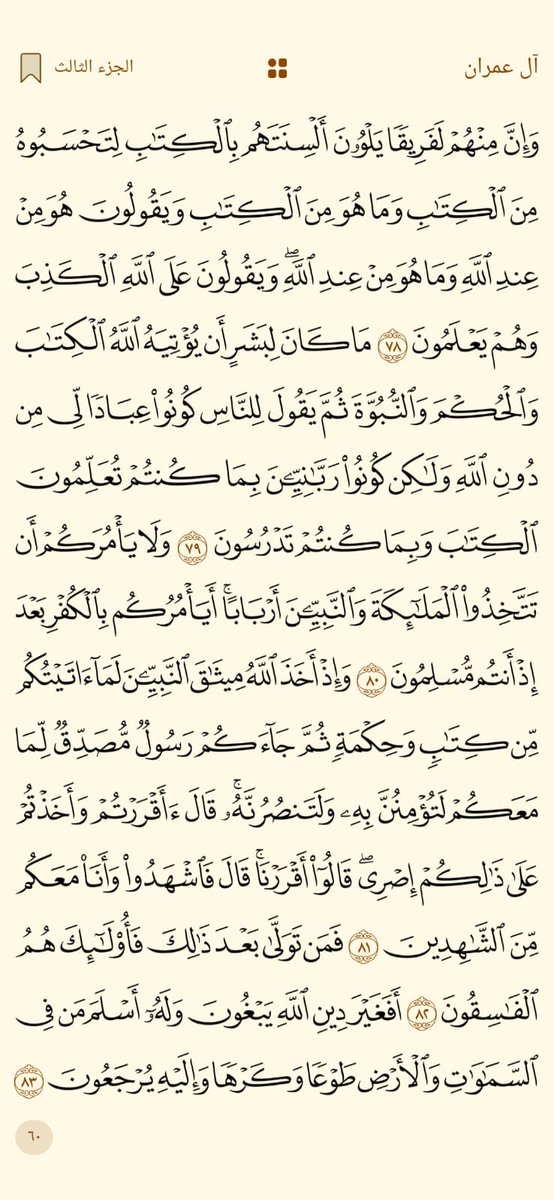 آل عمران
الجزء الثالث
وَإِنَّ مِنْهُمْ لَفَرِيقًا يَلْوُۥنَ أَلْسِنَتَهُم بِٱلْكِتَٰبِ لِتَحْسَبُوهُ
مِنَ ٱلْكِتَٰبِ وَمَا هُوَ مِنَ ٱلْكِتَٰبِ وَيَقُولُونَ هُوَ مِنْ
عِندِ ٱللَّهِ وَمَا هُوَ مِنْ عِندِ ٱللَّهِۖ وَيَقُولُونَ عَلَى ٱللَّهِ ٱلْكَذِبَ
وَهُمْ يَعْلَمُونَ ٧٨ مَا كَانَ لِبَشَرٍ أَن يُؤْتِيَهُ ٱللَّهُ ٱلْكِتَٰبَ
وَٱلْحُكْمَ وَٱلنُّبُوَّةَ ثُمَّ يَقُولَ لِلنَّاسِ كُونُوا۟ عِبَادًا لِّى مِن
دُونِ ٱللَّهِ وَلَٰكِن كُونُوا۟ رَبَّٰنِيِّۦنَ بِمَا كُنتُمْ تُعَلِّمُونَ
ٱلْكِتَٰبَ وَبِمَا كُنتُمْ تَدْرُسُونَ ٧٩ وَلَا يَأْمُرَكُمْ أَن
تَتَّخِذُوا۟ ٱلْمَلَٰٓئِكَةَ وَٱلنَّبِيِّۦنَ أَرْبَابًاۚ أَيَأْمُرُكُم بِٱلْكُفْرِ بَعْدَ
إِذْ أَنتُم مُّسْلِمُونَ ٨٠ وَإِذْ أَخَذَ ٱللَّهُ مِيثَٰقَ ٱلنَّبِيِّۦنَ لَمَآ ءَاتَيْتُكُم
مِّن كِتَٰبٍ وَحِكْمَةٍ ثُمَّ جَآءَكُمْ رَسُولٌ مُّصَدِّقٌ لِّمَا
مَعَكُمْ لَتُؤْمِنُنَّ بِهِۦ وَلَتَنصُرُنَّهُۥۚ قَالَ ءَأَقْرَرْتُمْ وَأَخَذْتُمْ
عَلَىٰ ذَٰلِكُمْ إِصْرِىۖ قَالُوٓا۟ أَقْرَرْنَاۚ قَالَ فَٱشْهَدُوا۟ وَأَنَا۠ مَعَكُم
مِّنَ ٱلشَّٰهِدِينَ ٨١ فَمَن تَوَلَّىٰ بَعْدَ ذَٰلِكَ فَأُو۟لَٰٓئِكَ هُمُ
ٱلْفَٰسِقُونَ ٨٢ أَفَغَيْرَ دِينِ ٱللَّهِ يَبْغُونَ وَلَهُۥٓ أَسْلَمَ مَن فِى
ٱلسَّمَٰوَٰتِ وَٱلْأَرْضِ طَوْعًا وَكَرْهًا وَإِلَيْهِ يُرْجَعُونَ ٨٣
٦٠